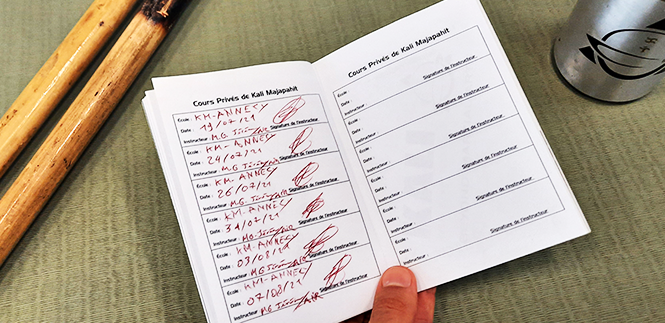 Cours Privés de Kali Majapahit
École : KM-ANNECY
Date : 19/07/21
Instructeur : MG
Signature de l'instructeur
École : KM-ANNECY
Date : 24/07/21
Instructeur : MG
Signature de l'instructeur
École : KM-ANNECY
Date : 26/07/21
Instructeur : MG
Signature de l'instructeur
École : KM-ANNECY
Date : 31/07/21
Instructeur : MG
Signature de l'instructeur
École : KM-ANNECY
Date : 03/08/21
Instructeur : MG
Signature de l'instructeur
École : KM-ANNECY
Date : 07/08/21
Instructeur : MG
Signature de l'instructeur
Cours Privés de Kali Majapahit
École :
Date :
Instructeur :
Signature de l'instructeur
École :
Date :
Instructeur :
Signature de l'instructeur
École :
Date :
Instructeur :
Signature de l'instructeur
École :
Date :
Instructeur :
Signature de l'instructeur
École :
Date :
Instructeur :
Signature de l'instructeur
École :
Date :
Instructeur :
Signature de l'instructeur